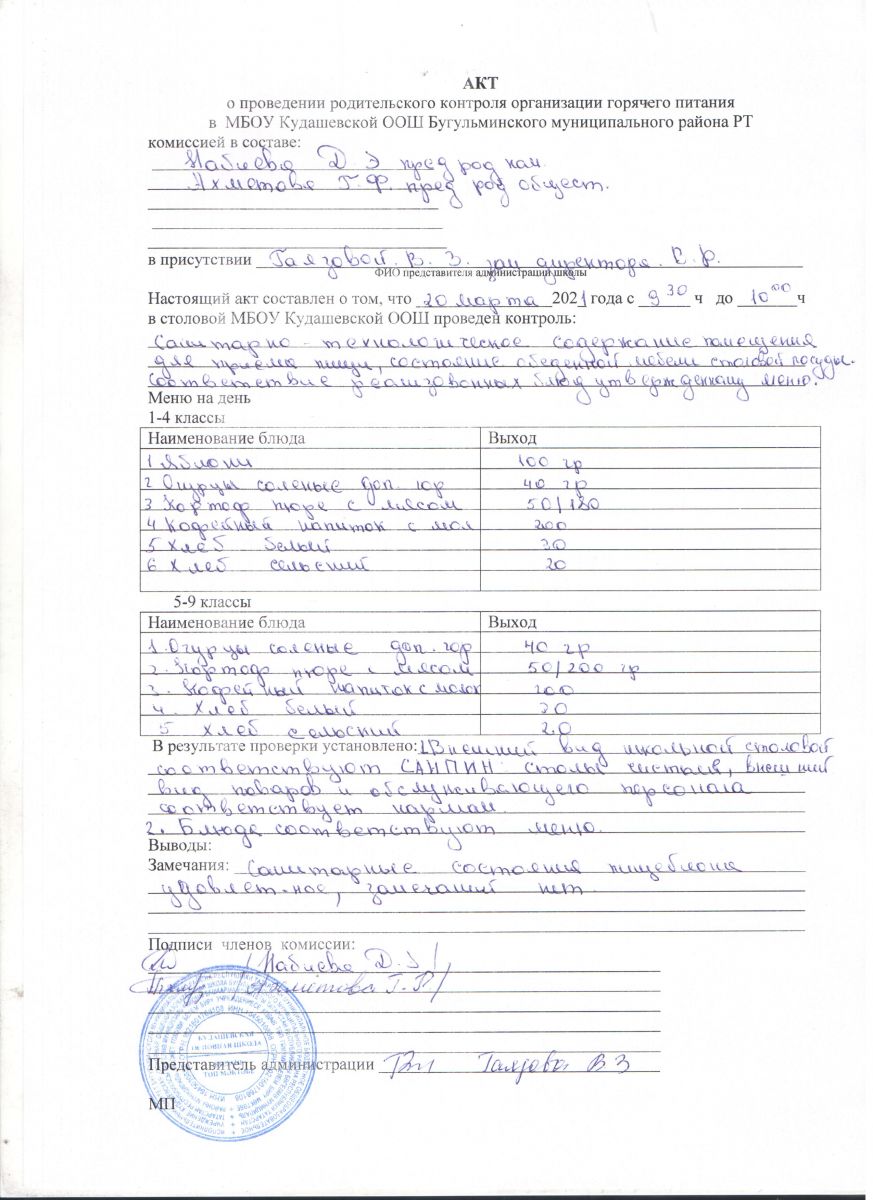 АКТ
о проведении родительского контроля организации горячего питания
в МБОУ Кудашевской ООШ Бугульминского муниципального района РТ
комиссией в составе:
Набиева Д. Э пред род ком.
Ахметова Г.Ф. пред род общест.
в присутствии Гаязовой. В. З. зам директора. С.р.
ФИО представителя администрации школы
Настоящий акт составлен о том, что 20 марта 2021 года с 9 30 ч до 10 00 ч
в столовой МБОУ Кудашевской ООШ проведен контроль:
Санитарно - технологическое содержание помещения
для приема пищи, состояние обеденной мебели столовой посуды.
Соответствие реализованных блюд утвержденному меню.
Меню на день
1-4 классы
Наименование блюда Выход
1 Яблоки 100 гр
2 Огурцы соленые доп. гор 40 гр
3 Картоф пюре с мясом 50/180
4 Кофейный напиток с мол 200
5 Хлеб белый 20
6 Хлеб сельский 20
5-9 классы
Наименование блюда Выход
1. Огурцы соленые доп. гор 40 гр
2. Картоф пюре с мясом 50/200 гр
3. Кофейный напиток с молок 200
4. Хлеб белый 20
5 Хлеб сельский 20
В результате проверки установлено: 1 Внешний вид школьной столовой
соответствуют САНПИН столы чистые, внешний
вид поваров и обслуживающего персонала
соответствует нормам.
2. Блюда соответствуют меню.
Выводы:
Замечания: Санитарные состояния пищеблока
удовлет-ное, замечаний нет.
Подписи членов комиссии:
/Набиева Д.Э/
/Ахметова Г.Ф/
КУДАШЕВСКАЯ
ОСНОВНАЯ ШКОЛА
Представитель администрации Гаязова В З
МП